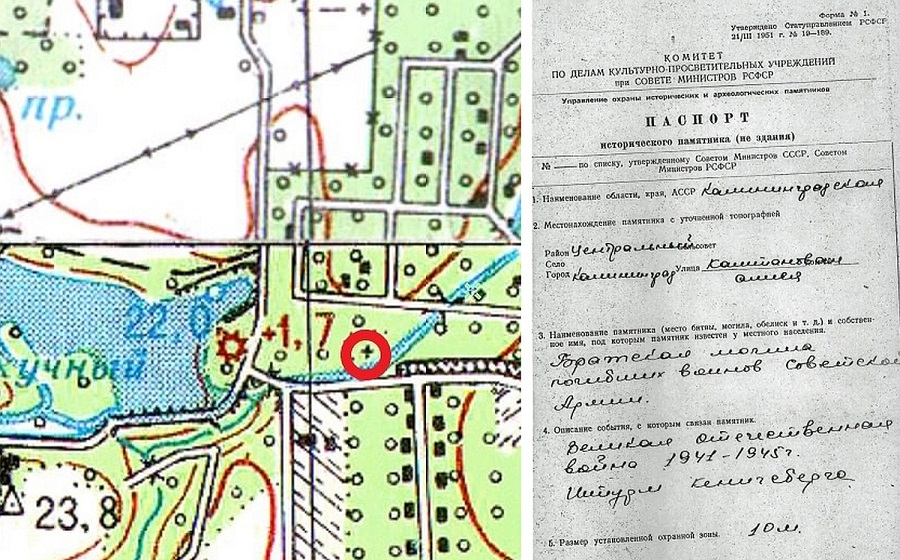 пр.
22 0
+1,7
хучный
23,8
Форма № 1.
Утверждено Статуправлением РСФСР
21/III 1951 г. № 19—189.
КОМИТЕТ
ПО ДЕЛАМ КУЛЬТУРНО-ПРОСВЕТИТЕЛЬНЫХ УЧРЕЖДЕНИЙ
при СОВЕТЕ МИНИСТРОВ РСФСР
Управление охраны исторических и археологических памятников
ПАСПОРТ
исторического памятника (не здания)
№ — по списку, утвержденному Советом Министров СССР, Советом
Министров РСФСР
1. Наименование области, края, АССР Калининградская
2. Местонахождение памятника с уточненной топографией
Район Центральный совет
Село
Город Калининград Улица Каштановая
аллея
3. Наименование памятника (место битвы, могила, обелиск и т. д.) и собствен-
ное имя, под которым памятник известен у местного населения.
Братская могила
погибших воинов Советской
Армии.
4. Описание события, с которым связан памятник.
Великая отечественная
война 1941-1945г.
Штурм Кенигсберга
5. Размер установленной охранной зоны. 10м.